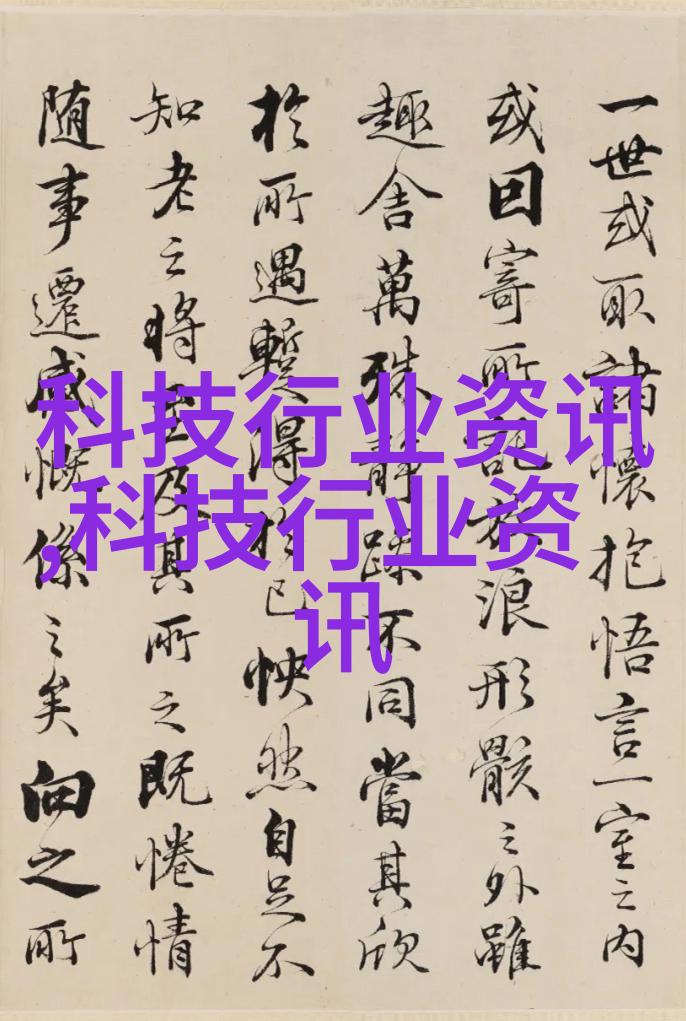 一世或取諸懷抱悟言一室之内
或因寄所託放浪形骸之外雖
趣舍萬殊靜躁不同當其欣
於所遇暫得於己怏然自足不
知老之將至及其所之既惓情
随事遷感慨係之矣向之所
科技行业资讯
,科技行业资
讯